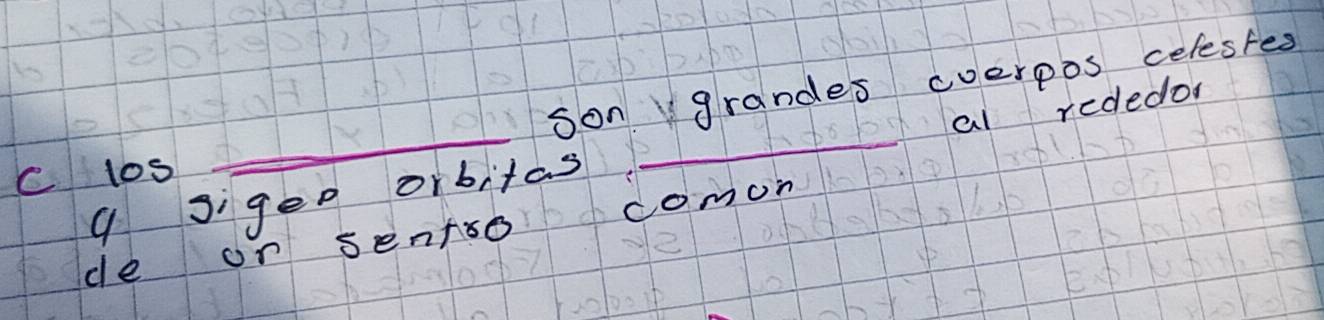 c los ______ son grandes cuerpos celestes
q sigen orbitas ______ al rededor
de un sentro comun